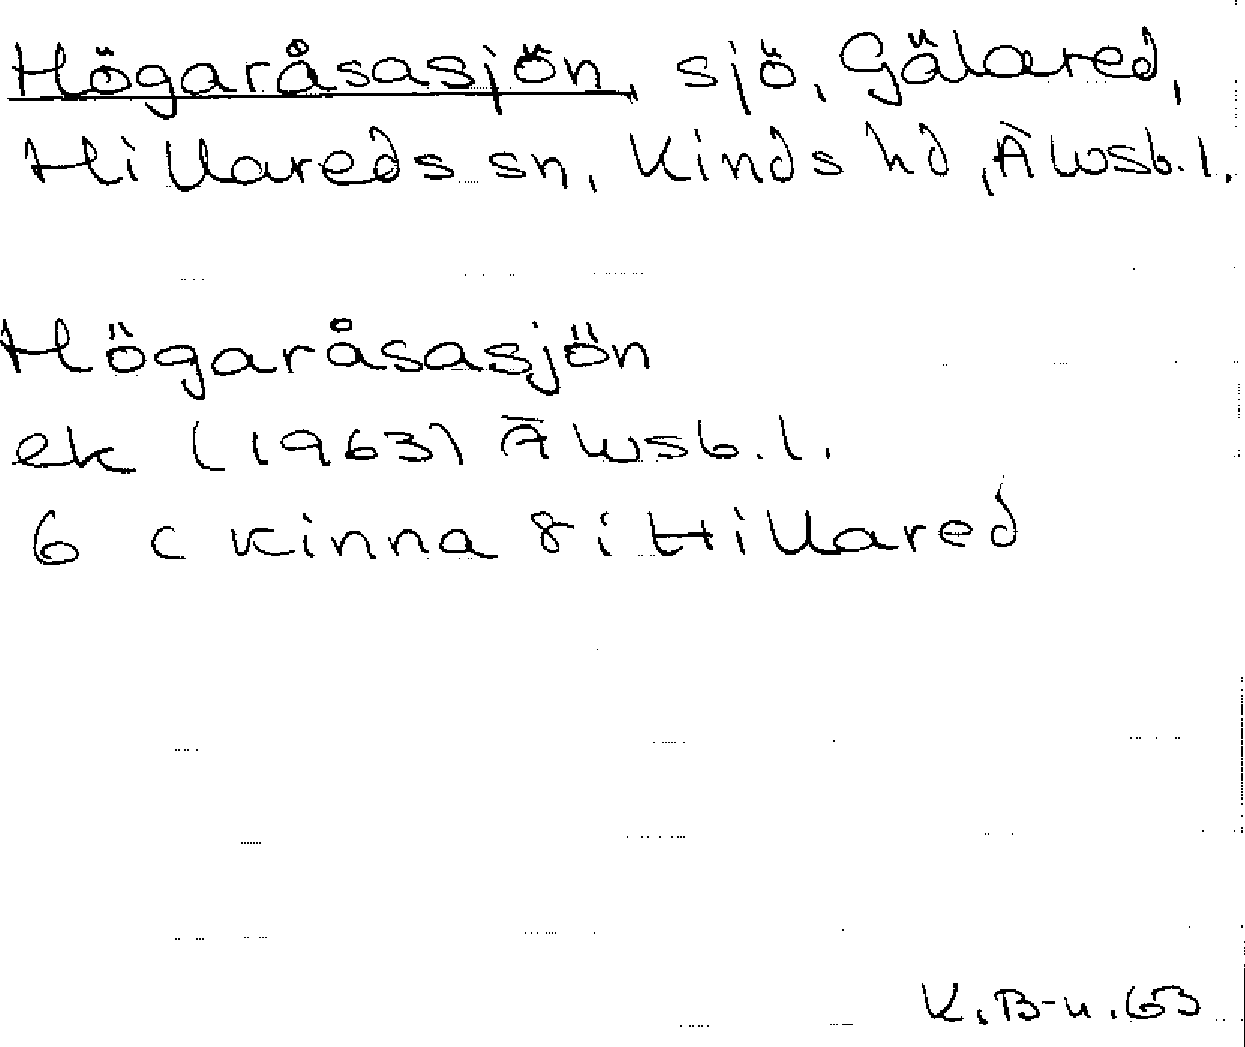 Högaråsasjön, sjö, Gälared,
Hillareds sn, Kinds hd, Älvsb.l.
Högaråsasjön
ek (1963) Älvsb.l.
6 c Kinna 8 i Hillared
K.B-n.63